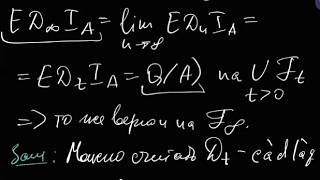 E D_∞ I_A = lim_{n→∞} E D_n I_A =
= E D_t I_A = Q(A) на ⋃_{t>0} F_t
=> то же верно на F_∞.
Зам: Можно считать D_t - càdlàg